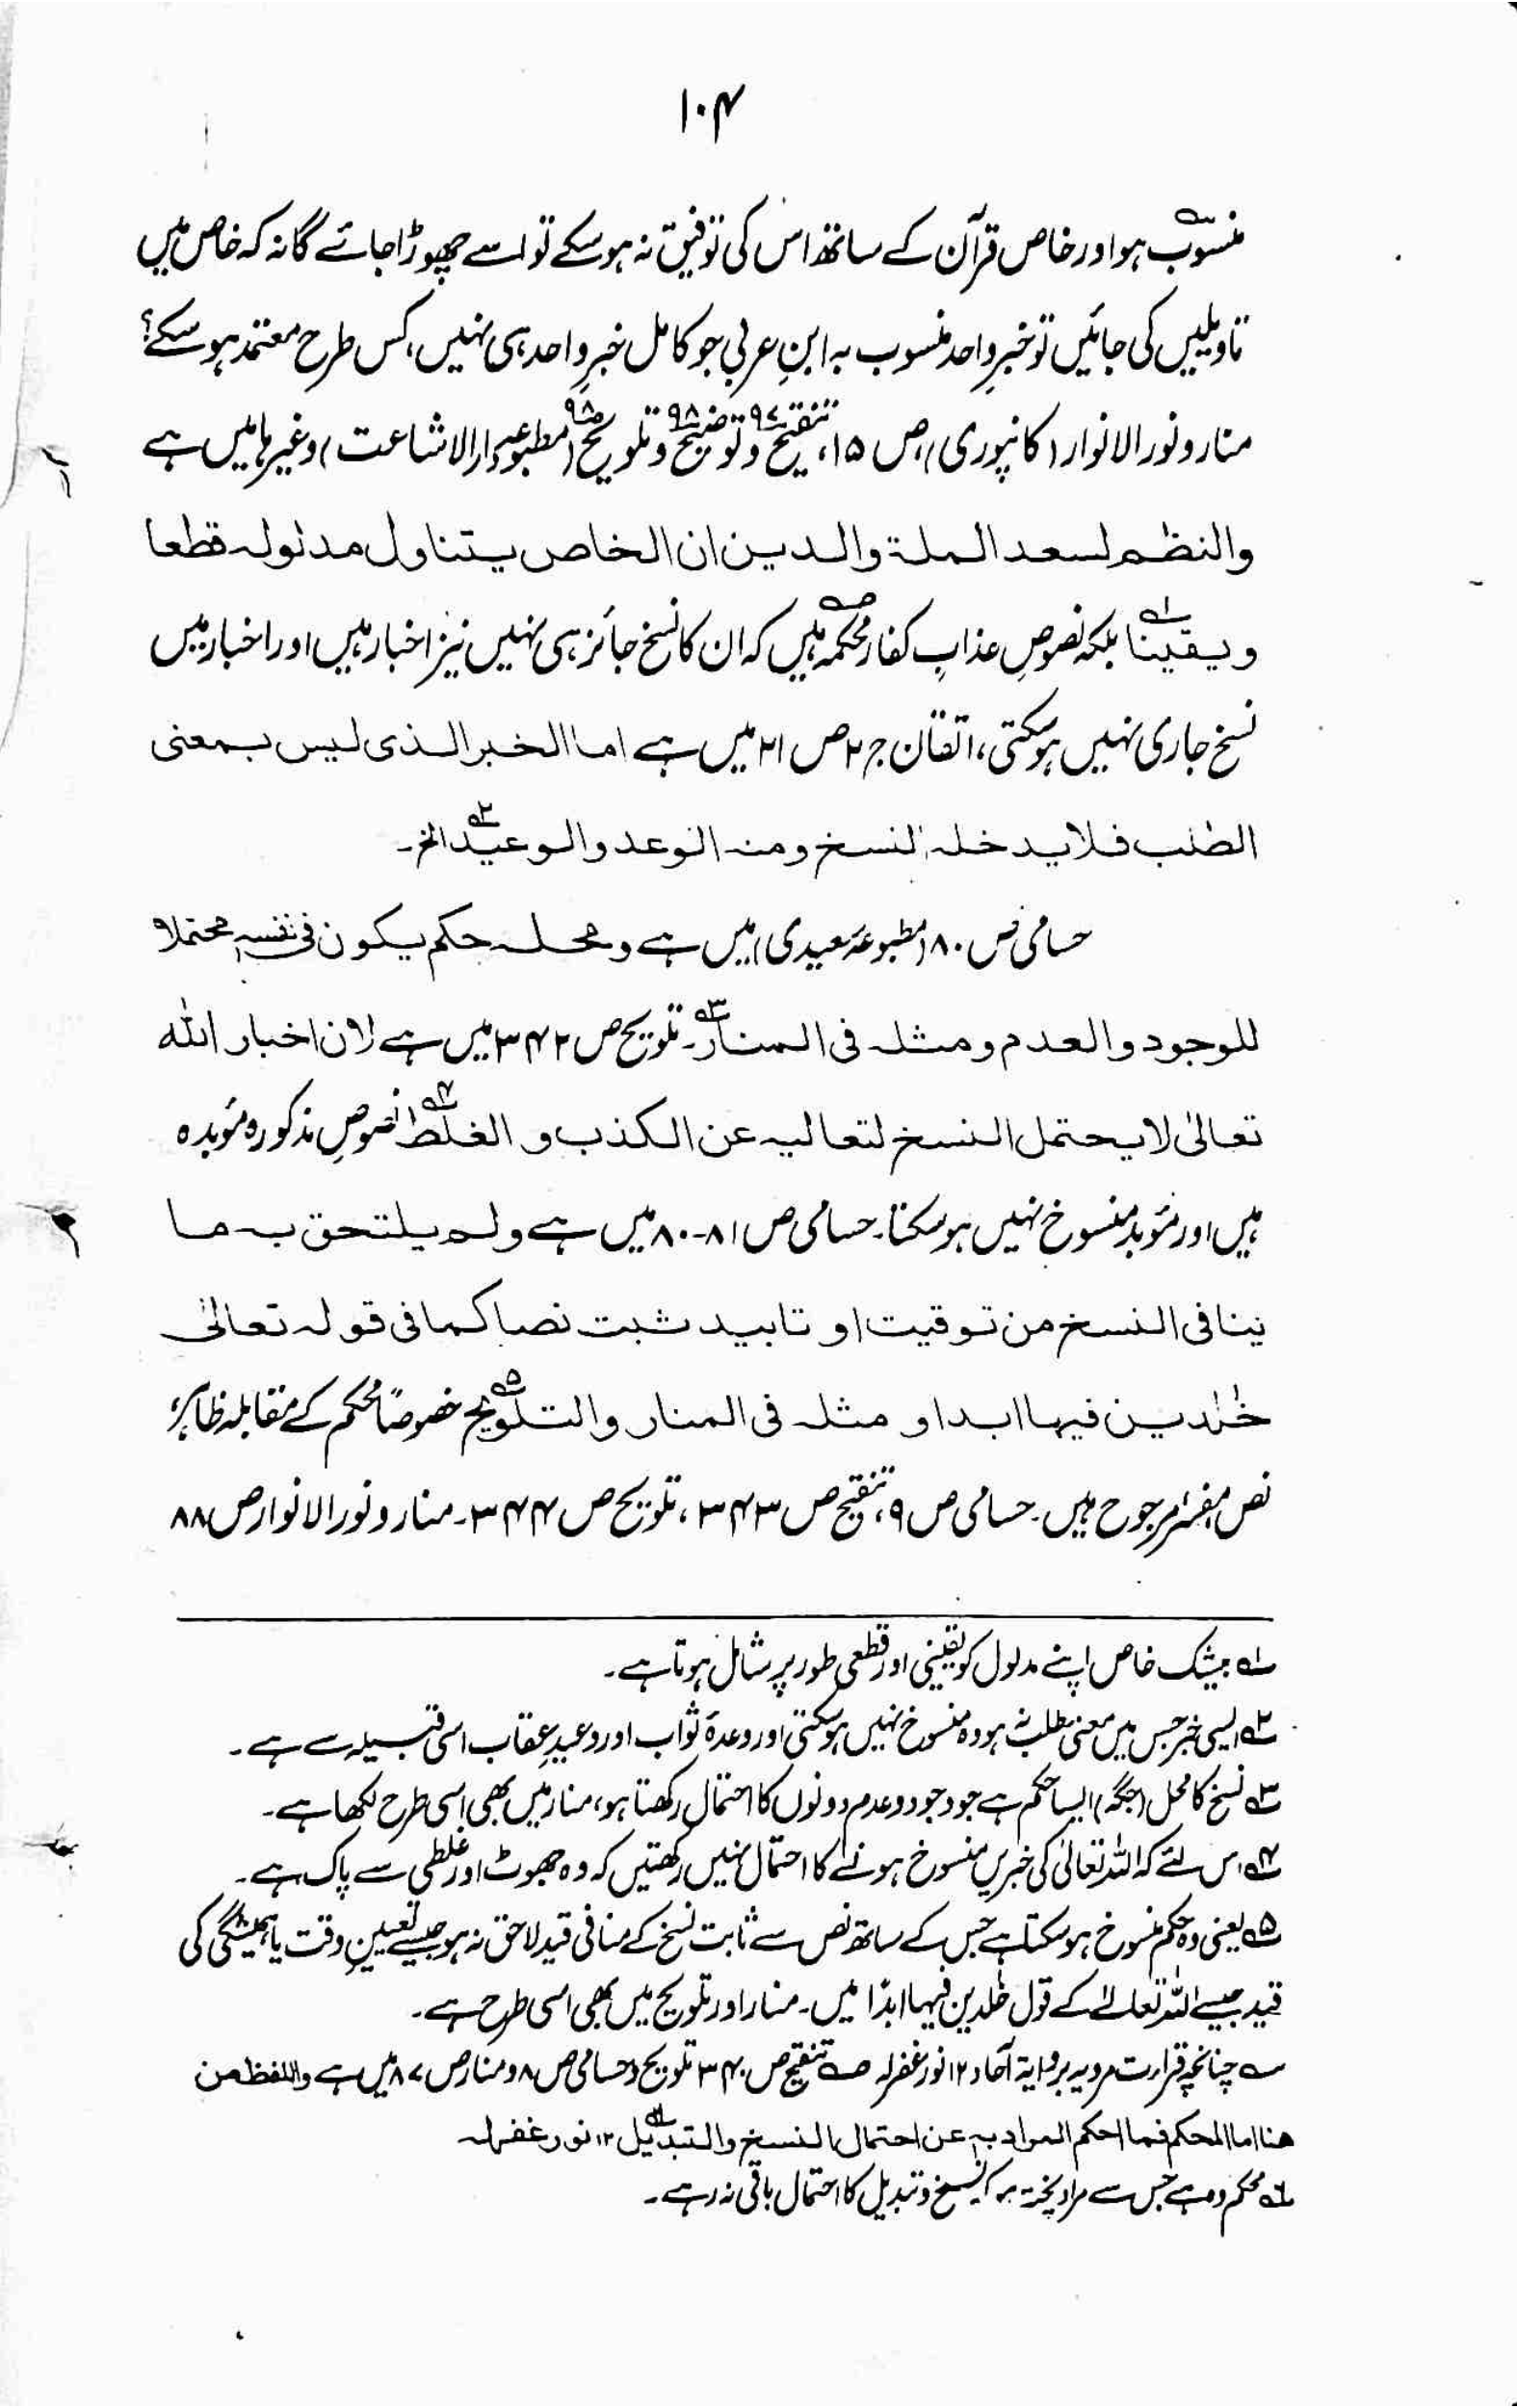 ۱۰۴
منسوب ہو اور خاص قرآن کے ساتھ اس کی توفیق نہ ہو سکے تو اسے چھوڑا جائے گا نہ کہ خاص میں
تاویلیں کی جائیں تو خبرِ واحد منسوب بہ ابنِ عربی جو کامل خبرِ واحد ہی نہیں، کس طرح معتمد ہو سکے؟
منار و نور الانوار (کانپوری) ص ۱۵، تنقیح ۹۷ و توضیح ۹۸ و تلویح ۹۸ (مطبوعہ دار الاشاعت) وغیرہا میں ہے
والنظم لسعد الملۃ والدین ان الخاص یتناول مدلولہ قطعا
ویقینا ؎۱ بلکہ نصوصِ عذابِ کفار محکمہ ؎ ہیں کہ ان کا نسخ جائز ہی نہیں نیز اخبار ہیں اور اخبار میں
نسخ جاری نہیں ہو سکتی، اتقان ج ۲ ص ۲۱ میں ہے اما الخبر الذی لیس بمعنی
الطلب فلا یدخلہ النسخ ومنہ الوعد والوعید ؎۲ الخ۔
حسامی ص ۸۰ (مطبوعہ سعیدی) میں ہے ومحلہ حکم یکون فی نفسہ محتملا
للوجود والعدم ومثلہ فی المنار ؎۳۔ تلویح ص ۳۴۲ میں ہے لان اخبار اللہ
تعالیٰ لا یحتمل النسخ لتعالیہ عن الکذب و الغلط ؎۴ نصوصِ مذکورہ مؤبدہ
ہیں اور مؤبد منسوخ نہیں ہو سکتا۔ حسامی ص ۸۱-۸۰ میں ہے ولم یلتحق بہ ما
ینافی النسخ من توقیت او تابید ثبت نصا کما فی قولہ تعالیٰ
خٰلدین فیہا ابدا و مثلہ فی المنار والتلویح ؎۵ خصوصًا محکم کے مقابلہ ظاہر،
نص مفسر مرجوح ہیں۔ حسامی ص ۹، تنقیح ص ۳۴۳، تلویح ص ۳۴۴۔ منار و نور الانوار ص ۸۸
؎۱ بیشک خاص اپنے مدلول کو یقینی اور قطعی طور پر شامل ہوتا ہے۔
؎۲ ایسی خبر جس میں معنیٔ طلب نہ ہو وہ منسوخ نہیں ہو سکتی اور وعدۂ ثواب اور وعیدِ عِقاب اسی قبیلہ سے ہے۔
؎۳ نسخ کا محل (جگہ) ایسا حکم ہے جو وجود و عدم دونوں کا احتمال رکھتا ہو، منار میں بھی اسی طرح لکھا ہے۔
؎۴ اس لئے کہ اللہ تعالیٰ کی خبریں منسوخ ہونے کا احتمال نہیں رکھتیں کہ وہ جھوٹ اور غلطی سے پاک ہے۔
؎۵ یعنی وہ حکم منسوخ ہو سکتا ہے جس کے ساتھ نص سے ثابت نسخ کے منافی قید لاحق نہ ہو جیسے تعیینِ وقت یا ہمیشگی کی
قید جیسے اللہ تعالےٰ کے قول خٰلدین فیہا ابدًا میں۔ منار اور تلویح میں بھی اسی طرح ہے۔
؎ چنانچہ قرارت مرویہ بروایۃ آحاد ۱۲ نور غفرلہ ؎ تنقیح ص ۳۴۰ تلویح و حسامی ص ۸ و منار ص ۸۷ میں ہے واللفظ من
ھنا اما المحکم فما احکم المراد بہ عن احتمال النسخ والتبدیل ؎۶ ۱۲ نور غفرلہ
؎۶ محکم وہ ہے جس سے مراد پختہ ہو کہ نسخ و تبدیل کا احتمال باقی نہ رہے۔